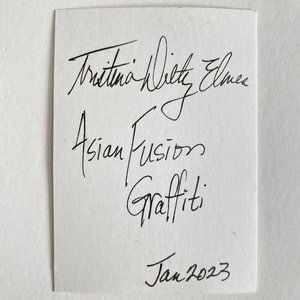 Tristina Dietz Elmes
Asian Fusion
Graffiti
Jan 2023